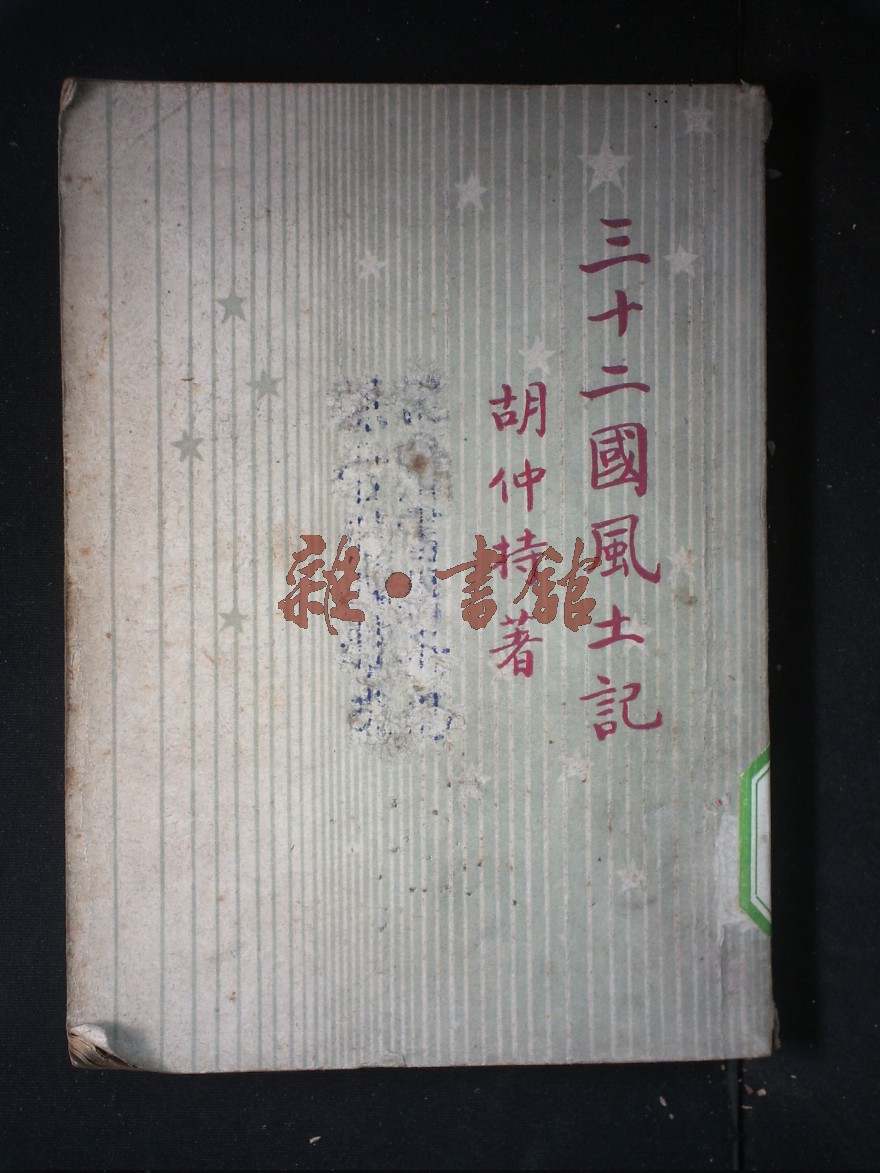 三十二國風土記
胡仲持著
雜·書館